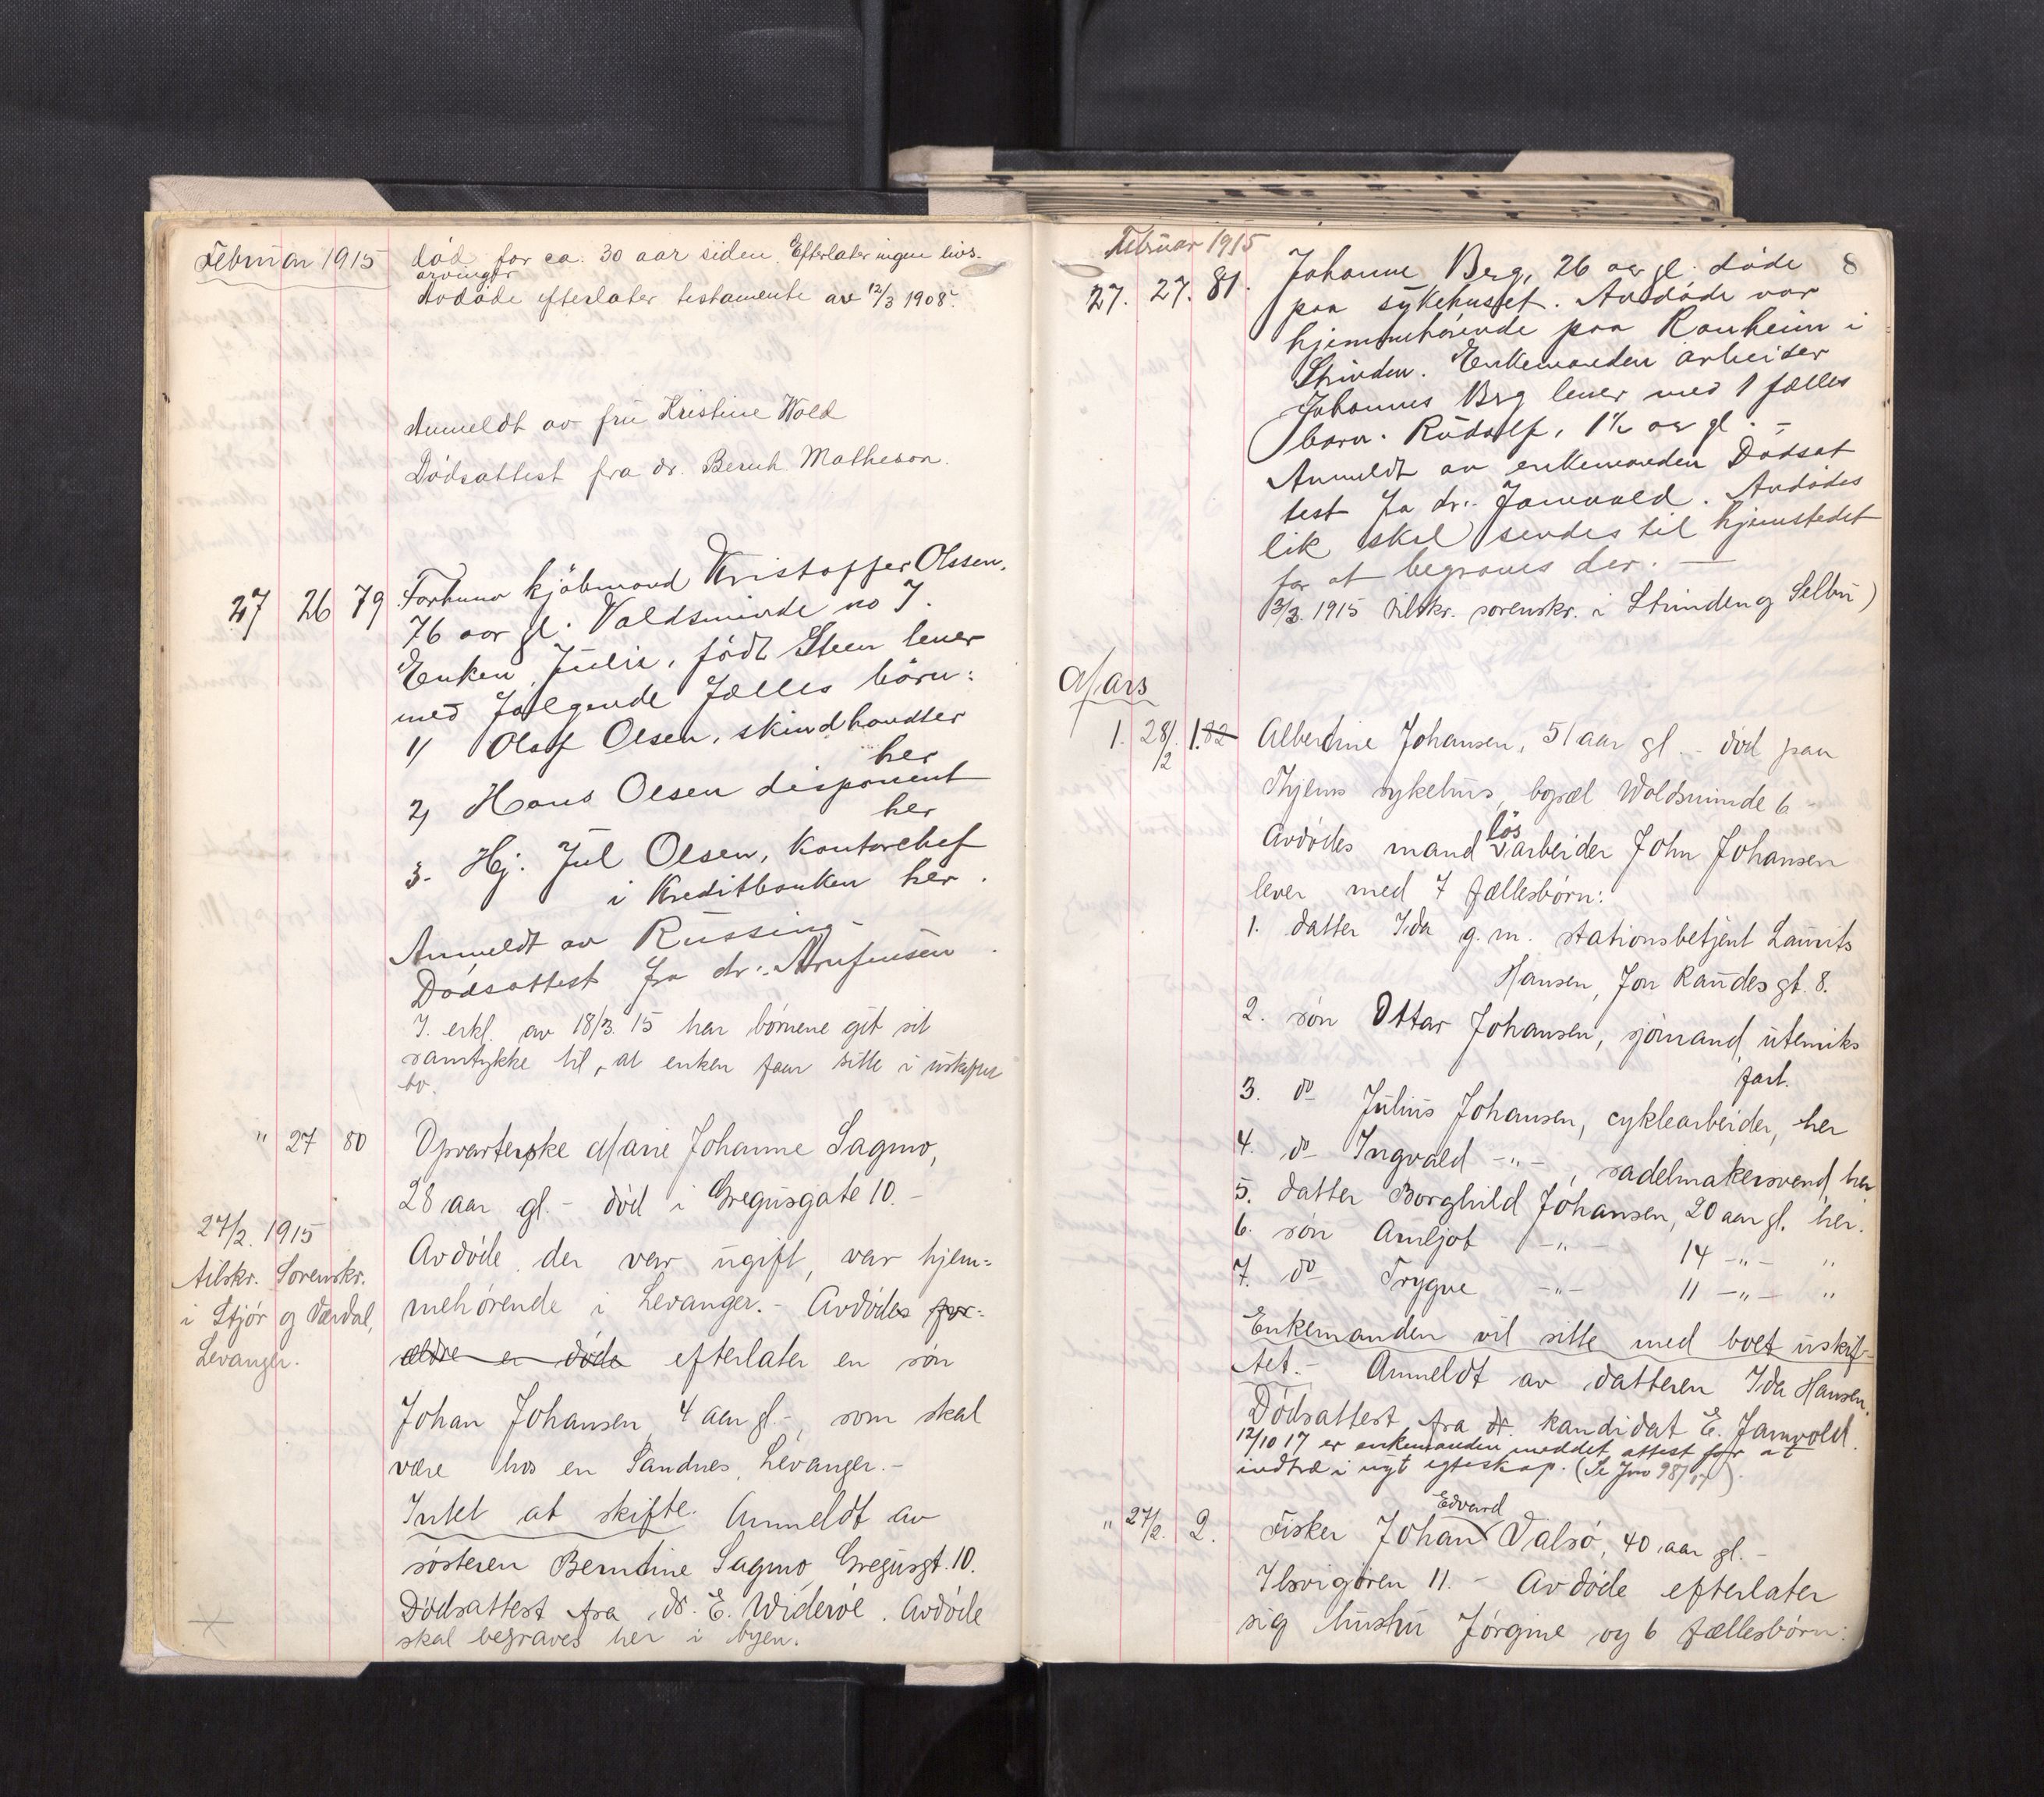 Februar 1915
død for ca. 30 aar siden. Efterlater ingen livs-
arvinger
Avdøde efterlater testamente av 12/3 1908.
Anmeldt av fru Kristine Wold
Dödsattest fra dr. Bernh. Matheson.
27 26 79 Forhenv kjöbmand Kristoffer Olssen,
76 aar gl. Valdsminde no 7.
Enken, Julie, född Steen lever
med følgende fælles börn:
1) Olaf Olsen, skindhandler
her
2) Hans Olsen disponent
her
3. Hj. Jul Olsen, Kontorchef
i Kreditbanken her.
Anmeldt av Russing
Dödsattest fra dr.
I. erkl. av 18/3. 15 har børnene git sit
samtykke til, at enken faar sitte i uskiftet
bo.
" 27 80 Opvarterske Marie Johanne Sagmo,
28 aar gl. - död i Gregusgate 10. -
27/2. 1915
Avdöde, der var ugift, var hjem=
tilskr. Sorenskr.
i Stjör og Værdal,
Levanger.
mehörende i Levanger. - Avdödes for=
ældre er döde efterlater en sön
Johan Johansen, 4 aar gl. -, som skal
være hos en Sandnes, Levanger. -
Intet at skifte. Anmeldt av
søsteren Berntine Sagmo, Gregusgt. 10.
Dödsattest fra dr. E. Wideröe. Avdöde
skal begraves her i byen.
Februar 1915
8
27. 27. 81. Johanne Berg, 26 aar gl. döde
paa sykehuset. Avdöde var
hjemmehörende paa Ranheim i
Strinden. Enkemanden arbeider
Johannes Berg lever med 1 fælles
barn. Rudolf, 1½ aar gl. -
Anmeldt av enkemanden Dödsat
test fra dr. Jamvold. Avdödes
lik skal sendes til hjemstedet
for at begraves der. -
3/3. 1915 tilskr. sorenskr. i Strinden og Selbu)
Mars
1. 28/2 1. 82 Alberdine Johansen, 51 aar gl. - död paa
Thjems sykehus, bopæl Woldsminde 6 -
lös
Avdödes mand arbeider John Johansen
lever med 7 fællesbörn:
1. datter Ida g. m. stationsbetjent Laurits
Hansen, Jon Raudes gt. 8.
2. sön Ottar Johansen, sjömand, utenriks
fart.
3. do Julius Johansen, cyklearbeider, her
4. do Ingvald -"-, sadelmakersvend, her
5. datter Borghild Johansen, 20 aar gl. her.
6. sön Arnljot -"- 14 -"- "
7. do Trygve -"- 11 -"- "
Enkemanden vil sitte med boet uskif-
tet. - Anmeldt av datteren Ida Hansen.
Dödsattest fra dr. kandidat E. Jamvold.
12/10 17 er enkemanden meddelt attest for at
indtræ i nyt egteskap. (Se Jno 98/17).
Edvard
" 27/2. 2. Fisker Johan Dalsö, 40 aar gl. -
Ilsvigören 11. - Avdöde efterlater
sig hustru Jörgine og 6 fællesbörn: